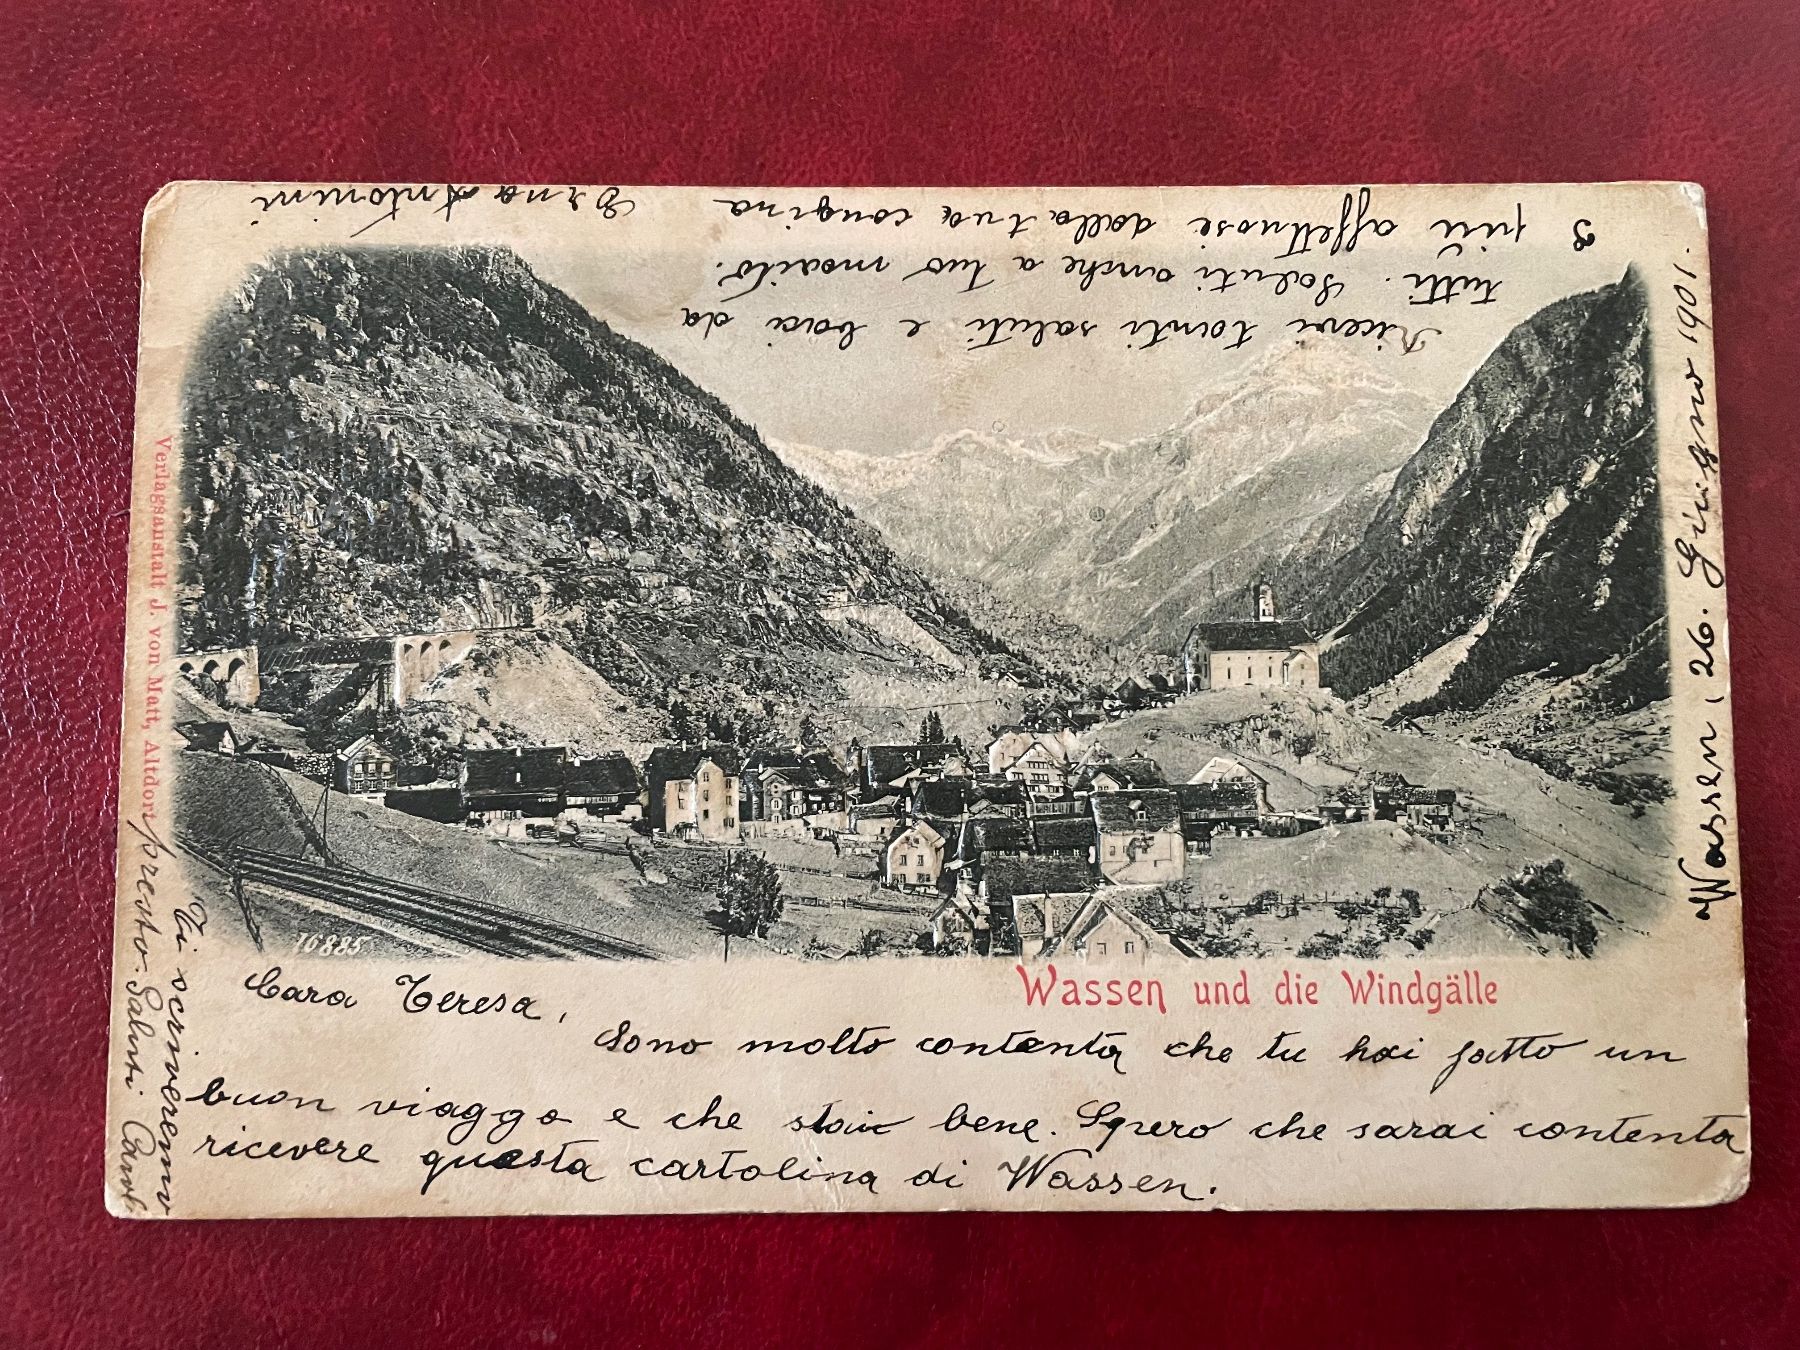 Wassen, 26. Giugno 1901.
Cara Teresa,
Sono molto contenta che tu hai fatto un
buon viaggo e che stai bene. Spero che sarai contenta
ricevere questa cartolina di Wassen.
Ti scriveremo
presto. Saluti
Ricevi tanti saluti e baci da
tutti. Saluti anche a tuo marito.
I più affettuosi dalla tua cougina
Erna Antonini
Wassen und die Windgälle
16885
Verlagsanstalt J. von Matt, Altdorf